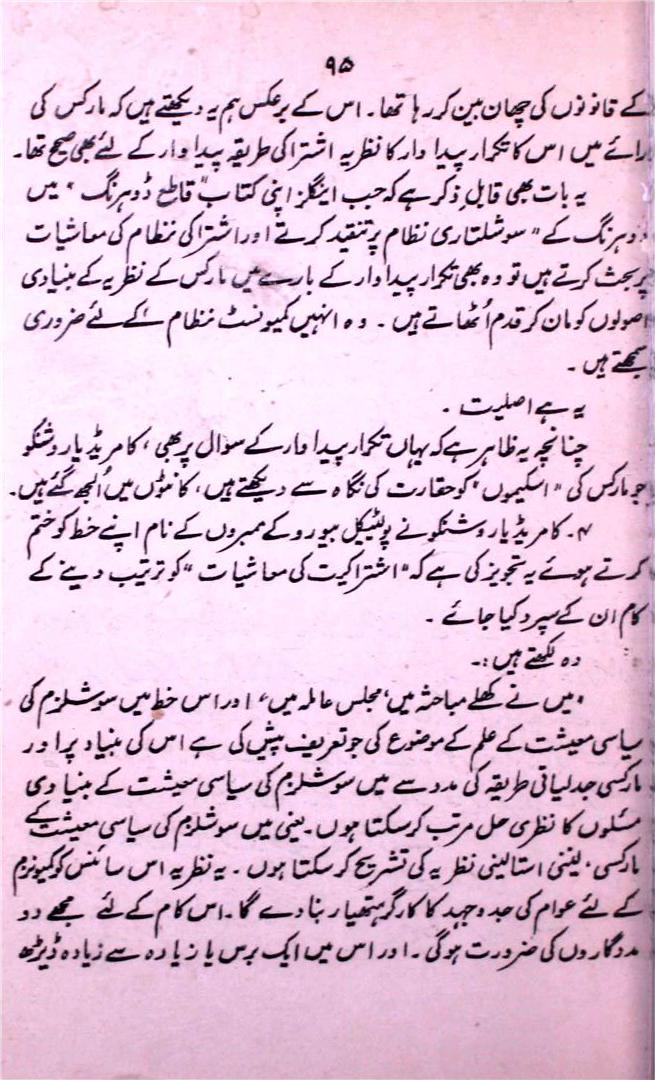 ۹۵
کے قانونوں کی چھان بین کر رہا تھا۔ اس کے برعکس ہم یہ دیکھتے ہیں کہ مارکس کی
رائے میں اس کا تکرار پیدا وار کا نظریہ اشتراکی طریقہ پیدا وار کے لئے بھی صحیح تھا۔
یہ بات بھی قابلِ ذکر ہے کہ جب اینگلز اپنی کتاب "قاطع ڈوہرنگ" میں
ڈوہرنگ کے "سوشلتاری نظام پر تنقید کرتے اور اشتراکی نظام کی معاشیات
پر بحث کرتے ہیں تو وہ بھی تکرار پیدا وار کے بارے میں مارکس کے نظریہ کے بنیادی
اصولوں کو مان کر قدم اُٹھاتے ہیں ۔ وہ انہیں کمیونسٹ نظام کے لئے ضروری
سمجھتے ہیں ۔
یہ ہے اصلیت ۔
چنانچہ یہ ظاہر ہے کہ یہاں تکرار پیدا وار کے سوال پر بھی ، کامریڈ یاروشنکو
جو مارکس کی "اسکیموں" کو حقارت کی نگاہ سے دیکھتے ہیں، کانٹوں میں اُلجھ گئے ہیں۔
۴۔ کامریڈ یاروشنکو نے پولٹیکل بیورو کے ممبروں کے نام اپنے خط کو ختم
کرتے ہوئے یہ تجویز کی ہے کہ "اشتراکیت کی معاشیات" کو ترتیب دینے کے
کام ان کے سپرد کیا جائے ۔
وہ لکھتے ہیں :۔
"میں نے کھلے مباحثہ میں، مجلس عاملہ میں، اور اس خط میں سوشلزم کی
سیاسی معیشت کے علم کے موضوع کی جو تعریف پیش کی ہے اس کی بنیاد پر اور
مارکسی جدلیاتی طریقہ کی مدد سے میں سوشلزم کی سیاسی معیشت کے بنیادی
مسئلوں کا نظری حل مرتب کر سکتا ہوں ۔ یعنی میں سوشلزم کی سیاسی معیشت کے
مارکسی، لیننی استالینی نظریہ کی تشریح کر سکتا ہوں ۔ یہ نظریہ اس سائنس کو کمیونزم
کے لئے عوام کی جدوجہد کا کارگر ہتھیار بنا دے گا ۔ اس کام کے لئے مجھے دو
مددگاروں کی ضرورت ہوگی ۔ اور اس میں ایک برس یا زیادہ سے زیادہ ڈیڑھ